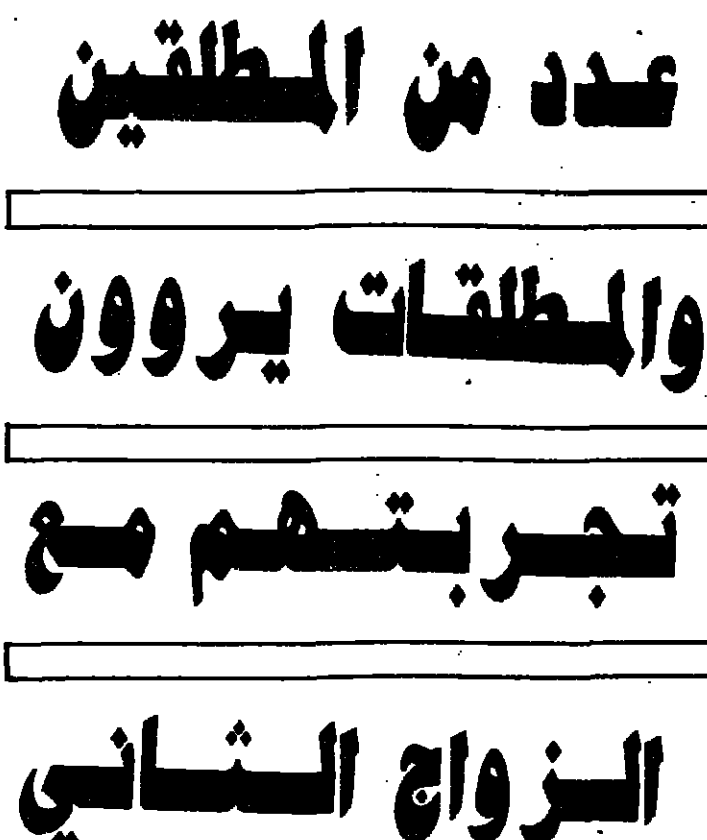 عدد من المطلقين
والمطلقات يروون
تجربتهم مع
الزواج الثاني